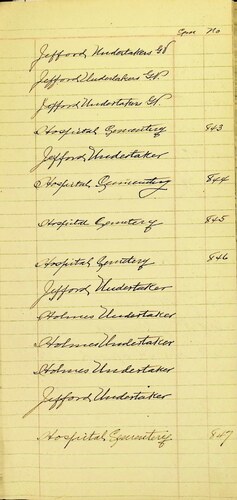 Spec No
Jefford Undertakers GP
Jefford Undertakers GP
Jefford Undertakers GP
Hospital Cemetery 843
Jefford Undertaker
Hospital Cemetery 844
Hospital Cemetery 845
Hospital Cemetery 846
Jefford Undertaker
Holmes Undertaker
Holmes Undertaker
Holmes Undertaker
Jefford Undertaker
Hospital Cemetery 847